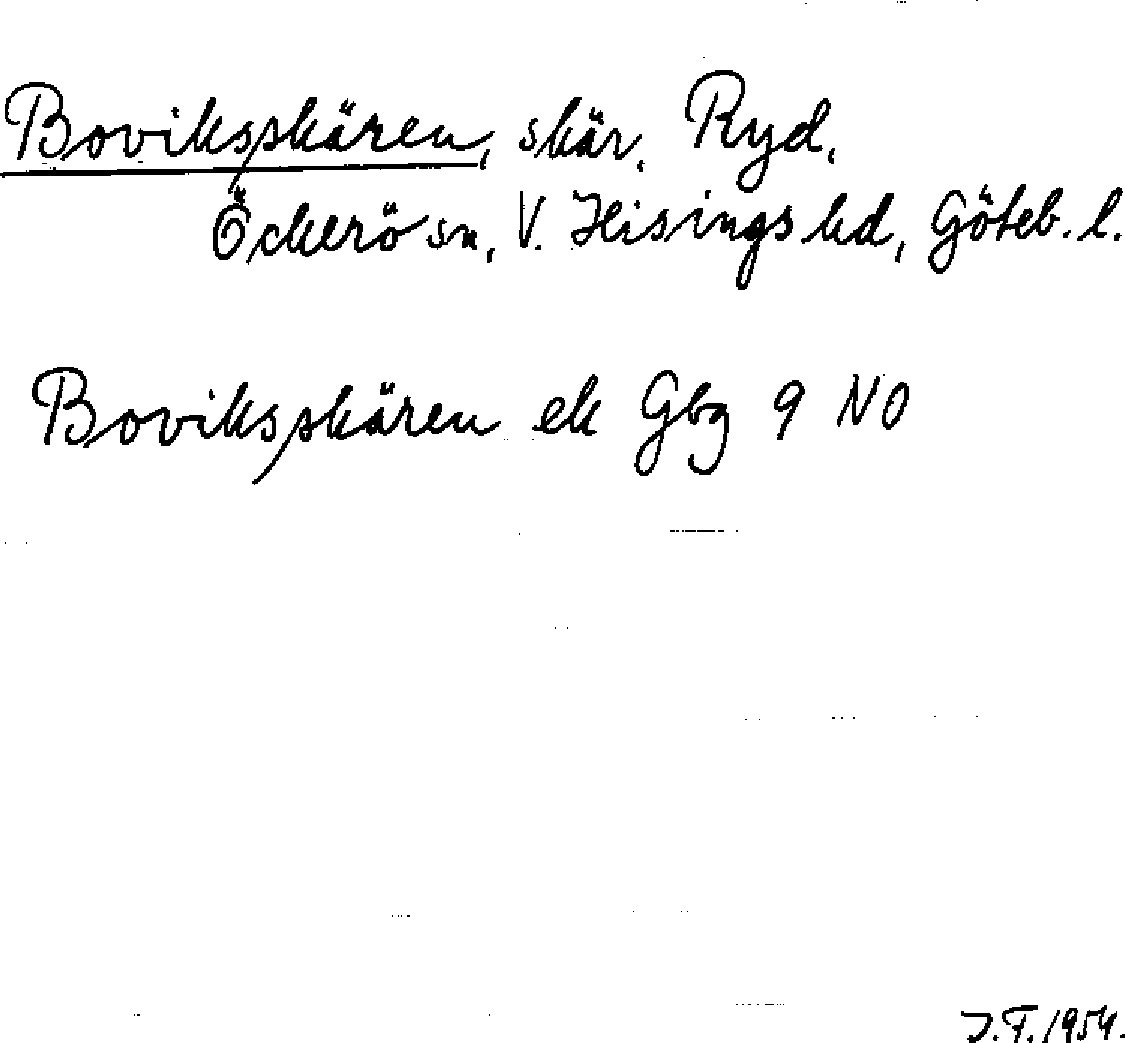 Boviksskären, skär, Ryd,
Öckerö sn, V. Hisings hd, Göteb. l.
Boviksskären ek Gbg 9 NO
J.F. 1954.